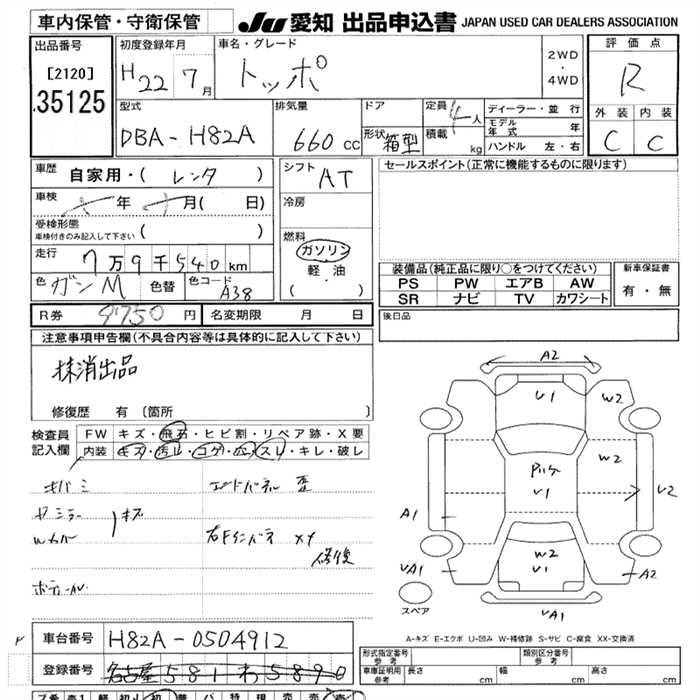 車内保管・守衛保管
JU 愛知 出品申込書 JAPAN USED CAR DEALERS ASSOCIATION
出品番号
[2120]
35125
初度登録年月
H22 7月
車名・グレード
トッポ
2WD
・
4WD
評価点
R
型式
DBA-H82A
排気量
660cc
ドア
形状 箱型
定員 4人
積載 kg
ディーラー・並行
モデル年式 年
ハンドル 左・右
外装 内装
C C
車歴
自家用・( レンタ )
車検
年 月( 日)
受検形態
車検付きのみ記入して下さい ( )
走行
7万9千540km
色 ガンM 色替 色コード A38
シフト AT
冷房
燃料
ガソリン
軽・油
( )
セールスポイント(正常に機能するものに限ります)
装備品(純正品に限り○をつけてください)
PS PW エアB AW
SR ナビ TV カワシート
新車保証書
有・無
R券 9750円 名変期限 月 日
後日品
注意事項申告欄(不具合内容等は具体的に記入して下さい)
抹消出品
修復歴 有(箇所 )
検査員
記入欄
FW キズ・飛石・ヒビ割・リペア跡・X要
内装 キズ・汚レ・コゲ・穴・スレ・キレ・破レ
キバミ
キズ
Wカバー
エンドパネル 歪
右Fインパネ XX
修復
A2
V1
W2
W2
V1
V2
A1
W2
V1
VA1
A2
VA1
スペア
A-キズ E-エクボ U-凹み W-補修跡 S-サビ C-腐食 XX-交換済
車台番号 H82A-0504912
登録番号 名古屋 581 わ 5890
形式指定番号 参考
類別区分番号 参考
車庫証明用 参考 長さ cm 幅 cm 高さ cm